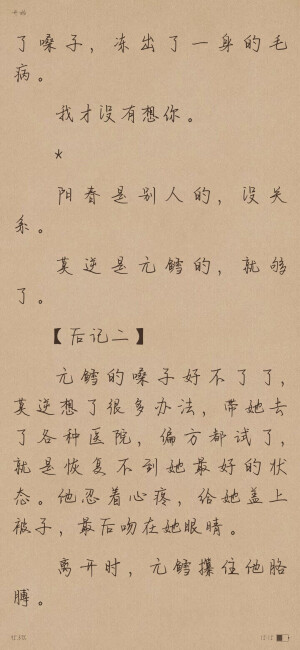 了嗓子，冻出了一身的毛
病。
我才没有想你。
*
阳春是别人的，没关
系。
莫逆是元鳕的，就够
了。
【后记二】
元鳕的嗓子好不了了，
莫逆想了很多办法，带她去
了各种医院，偏方都试了，
就是恢复不到她最好的状
态。他忍着心疼，给她盖上
被子，最后吻在她眼睛。
离开时，元鳕攥住他胳
膊。